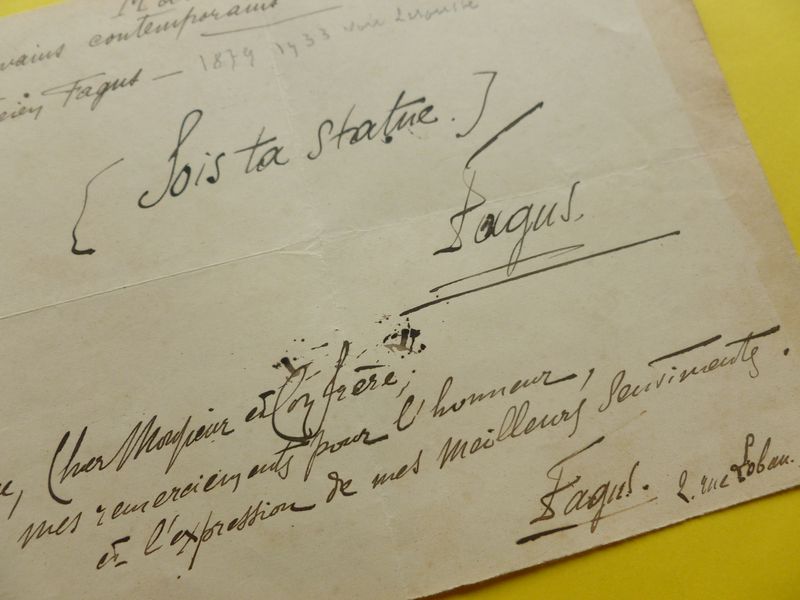 contemporains
Fagus — 1879 1933 voir Larousse
{ Sois ta statue. }
Fagus.
Cher Monsieur et Confrère;
mes remerciements pour l'honneur,
et l'expression de mes meilleurs sentiments.
Fagus. 2. rue Lobau.